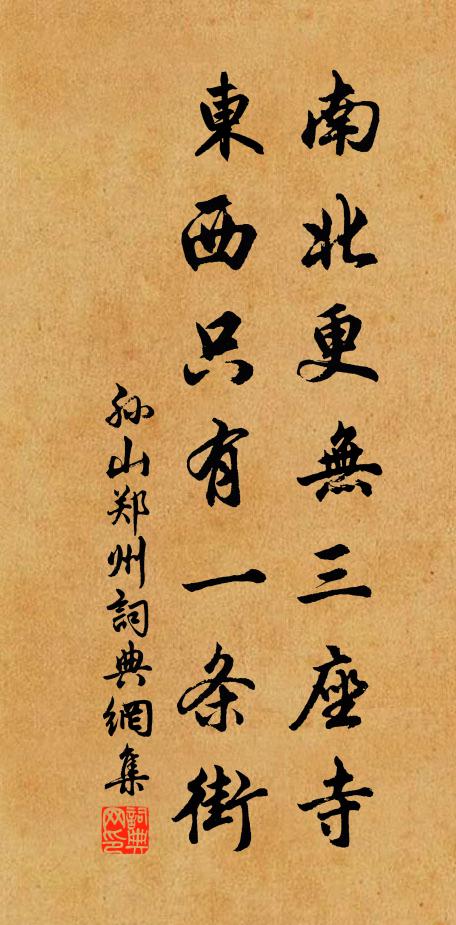 南北更無三座寺
東西只有一条街
孙山郑州詞典網集
詞典網印